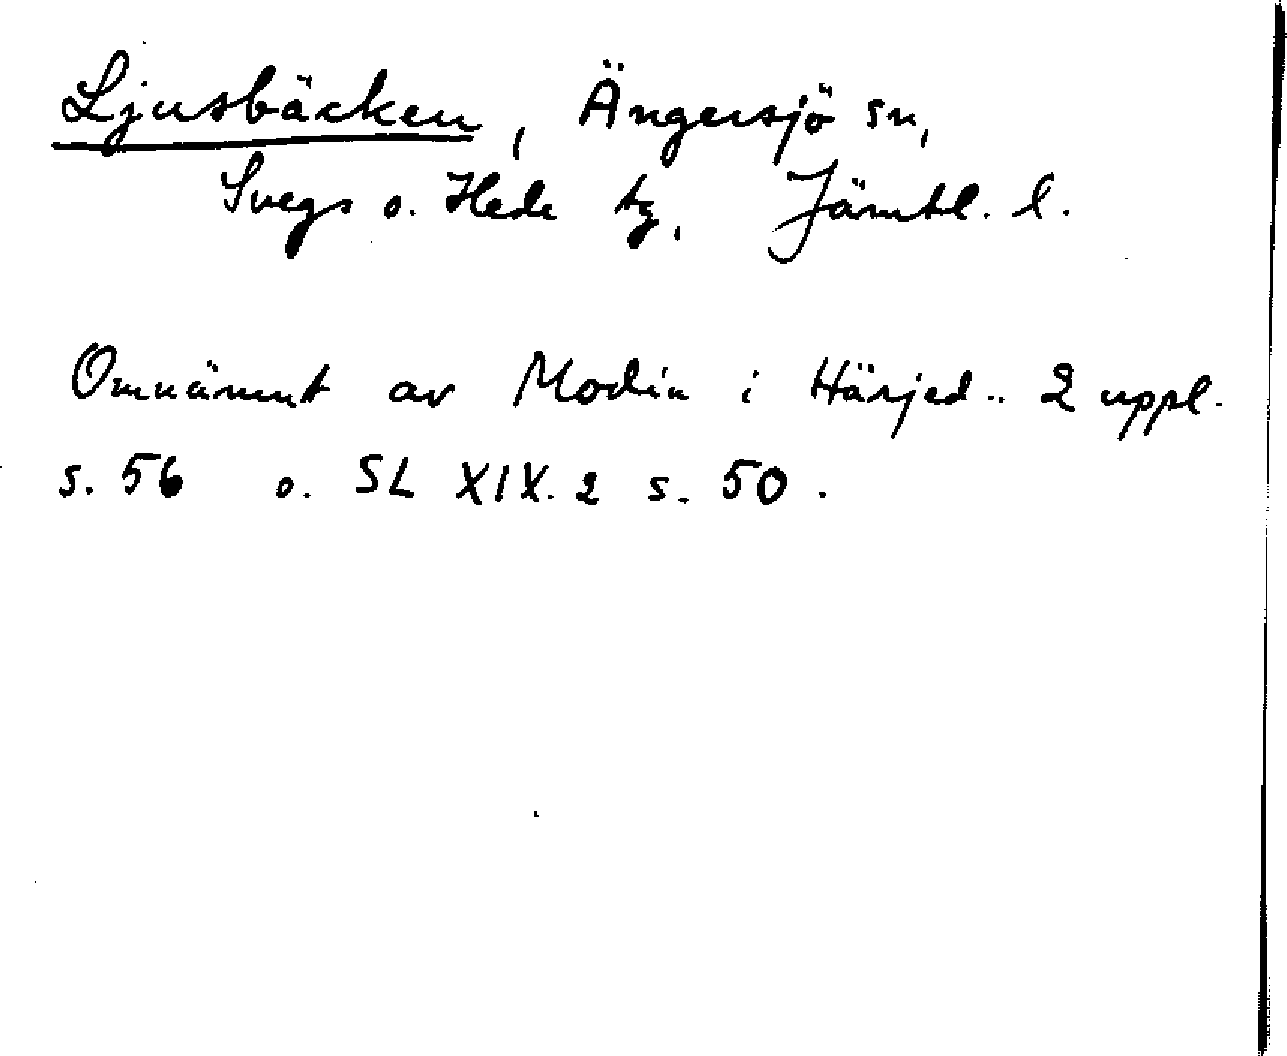 Ljusbäcken, Ängersjö sn,
Svegs o. Hede tg, Jämtl. l.
Omnämnt av Modin i Härjed.. 2 uppl.
s. 56 o. SL XIX. 2 s. 50.